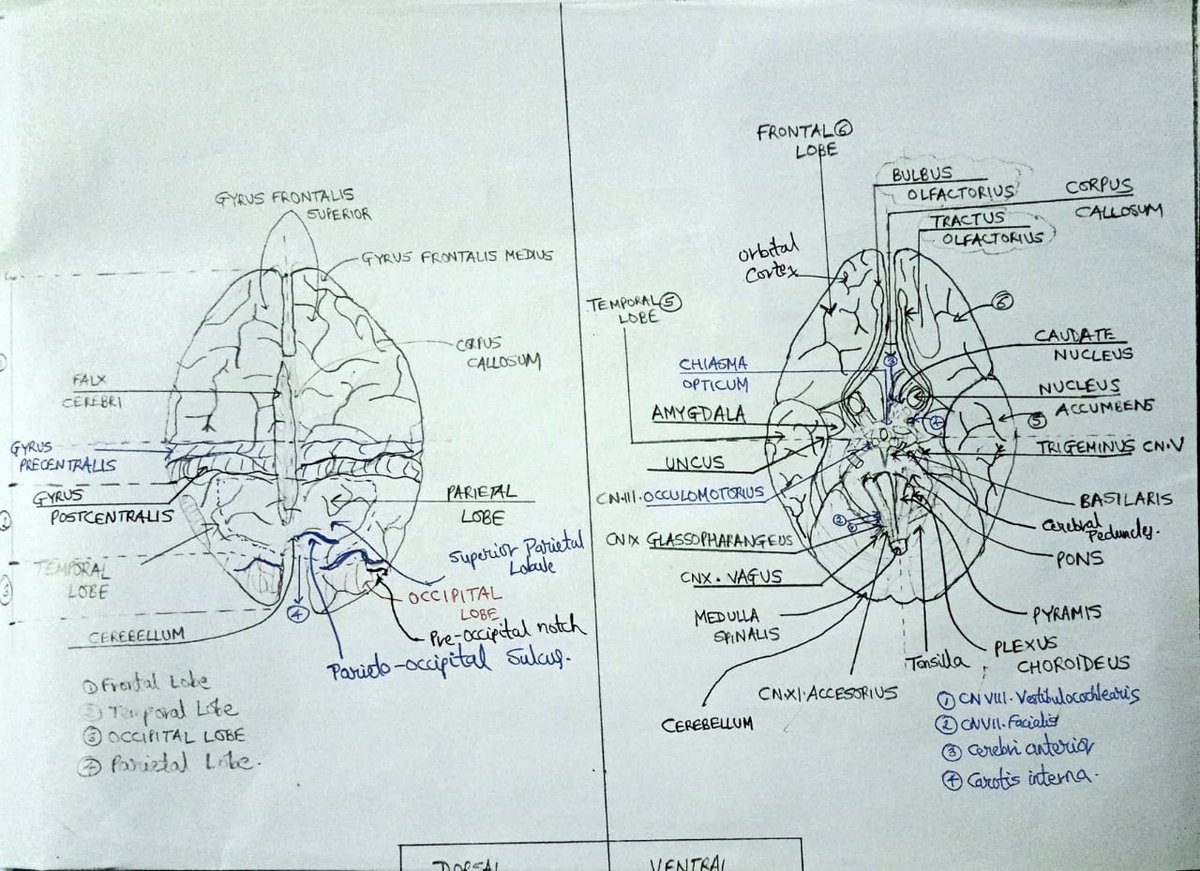 GYRUS FRONTALIS
SUPERIOR
GYRUS FRONTALIS MEDIUS
CORPUS
CALLOSUM
FALX
CEREBRI
GYRUS
PRECENTRALIS
GYRUS
POSTCENTRALIS
PARIETAL
LOBE
2
Superior Parietal
Lobule
TEMPORAL
LOBE
3
OCCIPITAL
LOBE
4
Pre-occipital notch
CEREBELLUM
Parieto-occipital Sulcus.
1 Frontal Lobe
2 Temporal Lobe
3 OCCIPITAL LOBE
4 Parietal Lobe.
DORSAL
FRONTAL 6
LOBE
BULBUS
OLFACTORIUS
CORPUS
CALLOSUM
TRACTUS
OLFACTORIUS
Orbital
Cortex
TEMPORAL 5
LOBE
6
CAUDATE
NUCLEUS
CHIASMA
OPTICUM
3
NUCLEUS
ACCUMBENS
AMYGDALA
4
5
TRIGEMINUS CN.V
UNCUS
CN.III.OCCULOMOTORIUS
BASILARIS
Cerebral
Peduncles.
CNIX GLASSOPHARANGEUS
2
1
PONS
CNX. VAGUS
MEDULLA
SPINALIS
PYRAMIS
PLEXUS
CHOROIDEUS
Tonsilla
CN.XI.ACCESORIUS
CEREBELLUM
1 CN VIII. Vestibulocochlearis
2 CNVII. Facialis
3 Cerebri anterior
4 Carotis interna.
VENTRAL